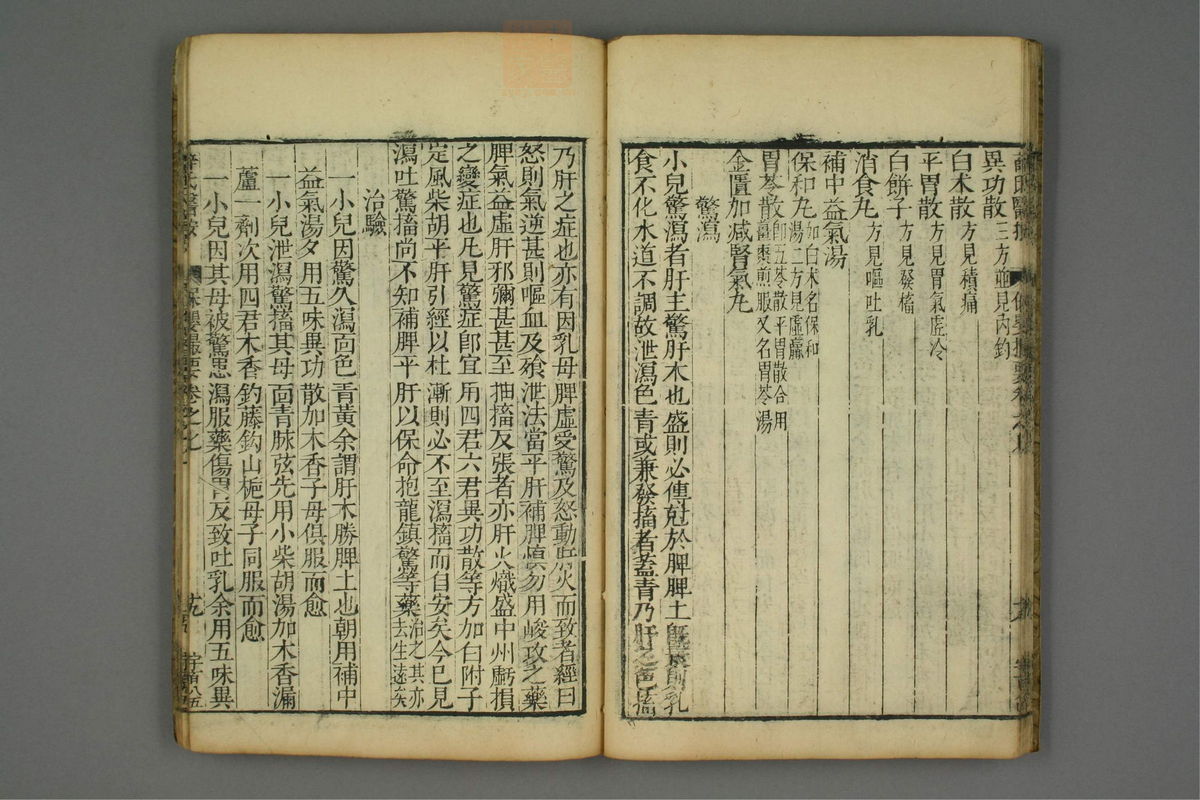 異功散三方並見內釣
白朮散方見積痛
平胃散方見胃氣虛冷
白餅子方見發搐
消食丸方見嘔吐乳
補中益氣湯
保和丸如白朮名保和
湯二方見虛羸
胃苓散即五苓散平胃散合用
薑棗煎服又名胃苓湯
金匱加减腎氣丸
驚瀉
小兒驚瀉者肝主驚肝木也盛則必傳尅於脾脾土既衰則乳
食不化水道不調故泄瀉色青或兼發搐者蓋青乃肝之色搐
乃肝之症也亦有因乳母脾虛受驚及怒動肝火而致者經曰
怒則氣逆甚則嘔血及飱泄法當平肝補脾慎勿用峻攻之藥
脾氣益虛肝邪彌甚甚至抽搐反張者亦肝火熾盛中州虧損
之變症也凡見驚症即宜用四君六君異功散等方加白附子
定風柴胡平肝引經以杜漸則必不至瀉搐而自安矣今已見
瀉吐驚搐尚不知補脾平肝以保命抱龍鎮驚等藥治之其亦
去生遠矣
治驗
一小兒因驚久瀉面色青黃余謂肝木勝脾土也朝用補中
益氣湯夕用五味異功散加木香子母俱服而愈
一小兒泄瀉驚搐其母面青脉弦先用小柴胡湯加木香漏
蘆一劑次用四君木香釣藤鈎山梔母子同服而愈
一小兒因其母被驚患瀉服藥傷胃反致吐乳余用五味異
薛氏醫按 保嬰撮要卷之七